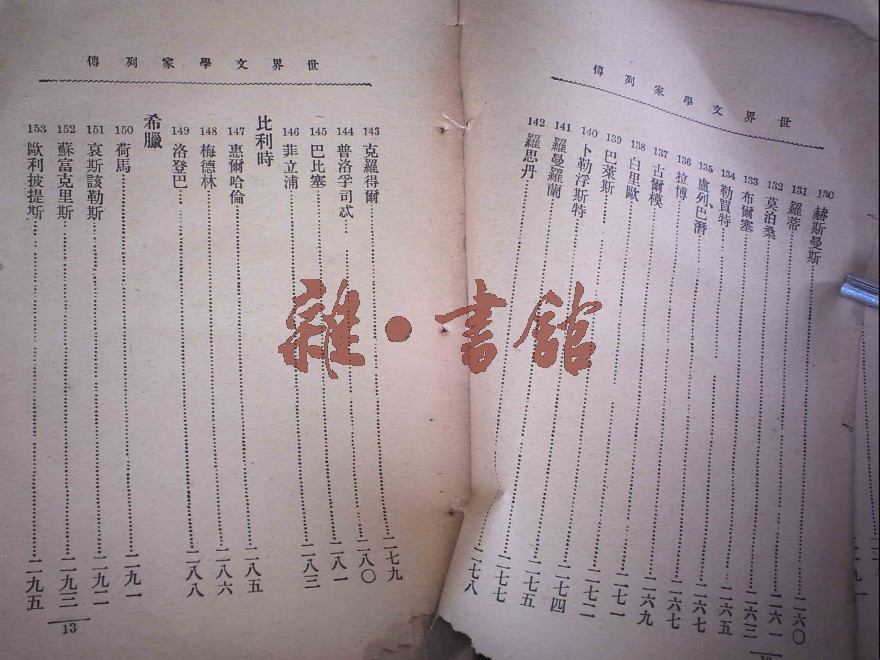 世界文學家列傳
130 赫斯曼斯……二六〇
131 羅蒂……二六一
132 莫泊桑……二六三
133 布爾塞……二六五
134 勒買特……二六七
135 盧列、巴潛……二六七
136 拉博……二六九
137 古爾模……二七一
138 白里歐……二七二
139 巴萊斯……二七四
140 卜勒浮斯特……二七五
141 羅曼羅蘭……二七七
142 羅思丹……二七八
世界文學家列傳
143 克羅得爾……二七九
144 普洛孚司忒……二八〇
145 巴比塞……二八一
146 菲立浦……二八三
比利時
147 惠爾哈倫……二八五
148 梅德林……二八六
149 洛登巴……二八八
希臘
150 荷馬……二九一
151 哀斯該勒斯……二九二
152 蘇富克里斯……二九三
153 歐利披提斯……二九五
13
雜·書館